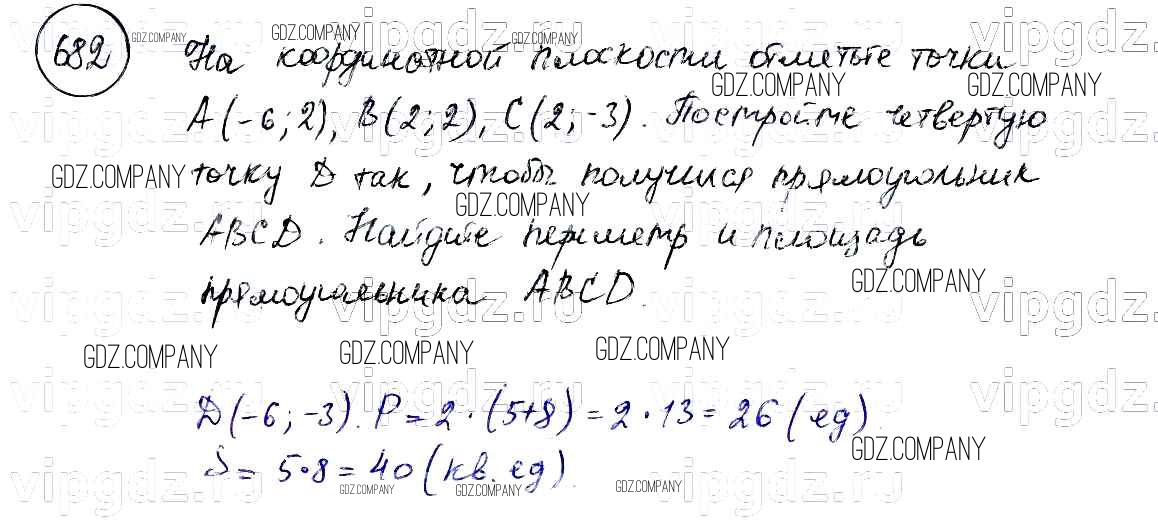 682
На координатной плоскости отметьте точки
A(-6; 2), B(2; 2), C(2; -3). Постройте четвертую
точку D так, чтобы получился прямоугольник
ABCD. Найдите периметр и площадь
прямоугольника ABCD.
D(-6; -3). P = 2 · (5+8) = 2 · 13 = 26 (ед).
S = 5·8 = 40 (кв. ед).
GDZ.COMPANY
vipgdz.ru